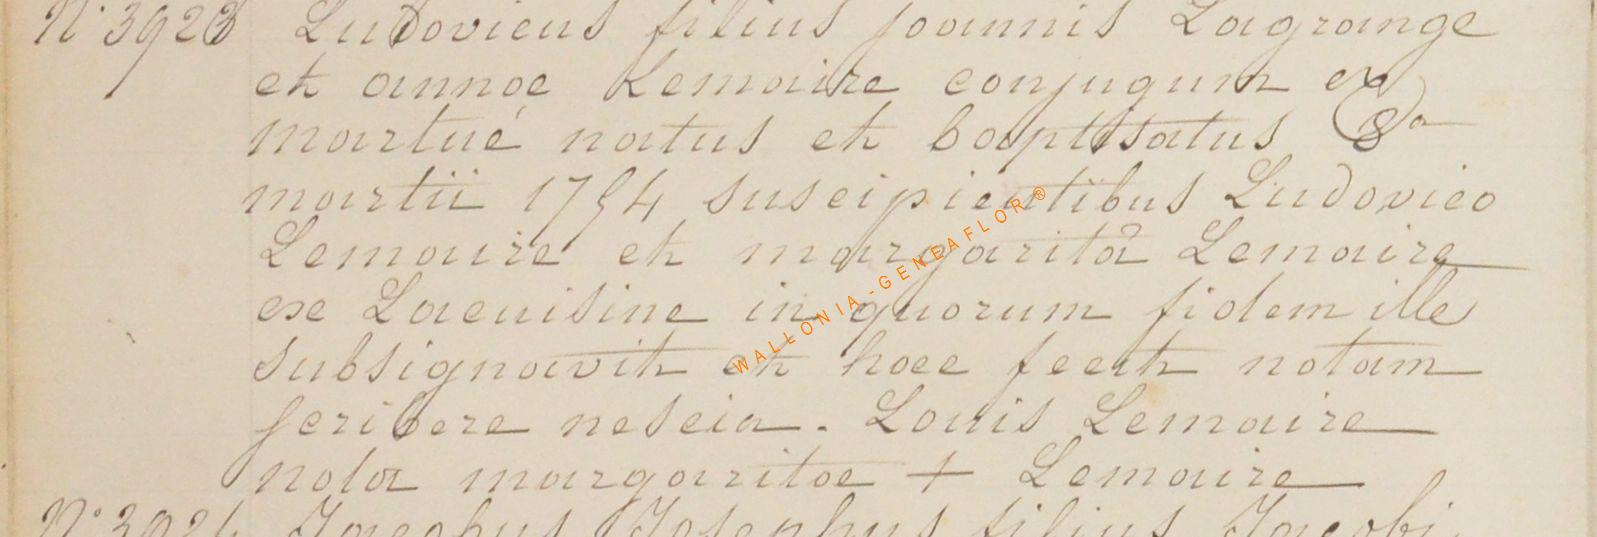 N° 3923 Ludovicus filius joannis Lagrange
et annae Lemaire conjugum ex
martué natus et baptisatus 8a
martii 1754 suscipientibus Ludovico
Lemaire et margaritâ Lemaire
ex Lacuisine in quorum fidem ille
subsignavit et haec fecit notam
scribere nescia. Louis Lemaire
nota margaritae + Lemaire
N° 3924 Jacobus Josephus filius Jacobi
WALLONIA-GENEAFLOR®